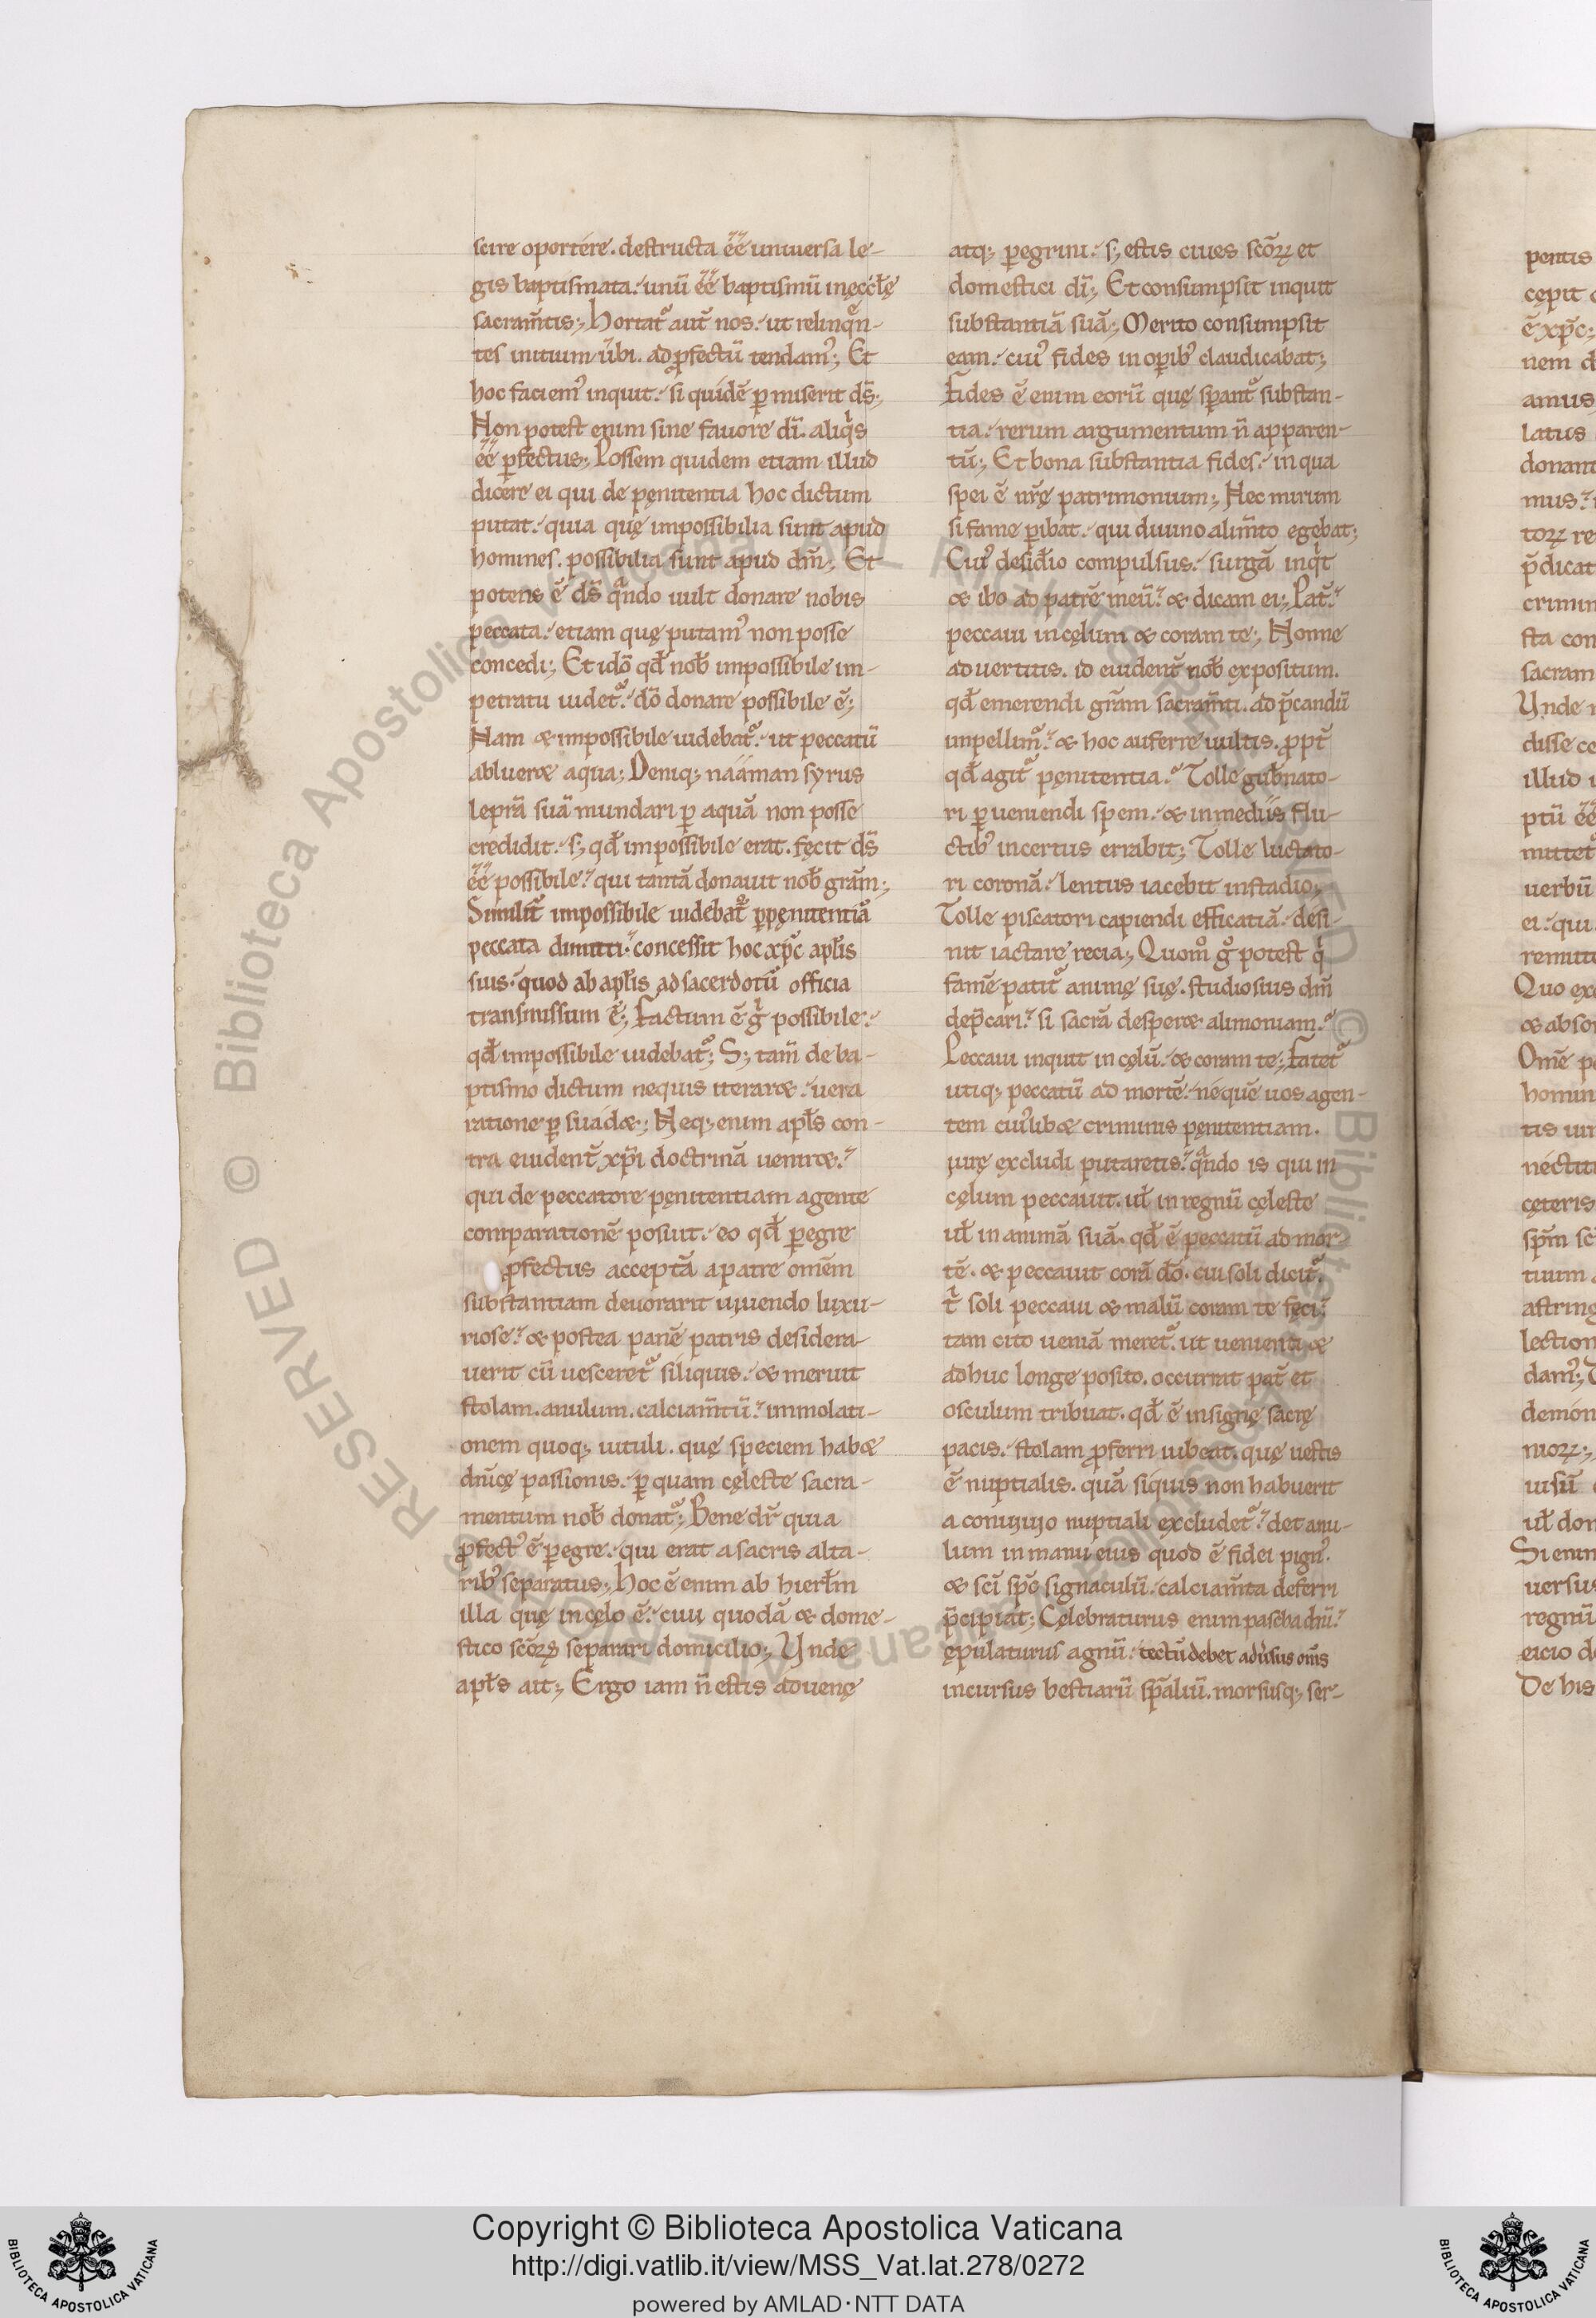 scire oportere. destructa ēē uniuersa le-
gis baptismata. unū ēē baptismū in ęccłę
sacram̄tis; Hortat᷑ aut̄ nos. ut relinqn-
tes initium ūbi. ad ꝓfectū tendam᷒; Et
hoc faciem᷒ inquit. si quidē ꝑmiserit ds̄;
Non potest enim sine fauore dī. aliqͥs
ēē ꝑfectus; Possem quidem etiam illud
dicere ei qui de pęnitentia hoc dictum
putat. quia quę impossibilia sunt apud
homines. possibilia sunt apud dm̄; Et
potens ē ds̄ qͣndo uult donare nobis
peccata. etiam quę putam᷒ non posse
concedi; Et idō qđ nob̄ impossibile im-
petratu uidet᷑. dō donare possibile ē;
Nam & impossibile uidebat᷑. ut peccatū
ablueret aqua; Deniq; naaman syrus
leprā suā mundari ꝑ aquā non posse
credidit. s; qđ impossibile erat. fęcit ds̄
ēē possibile. qui tantā donauit nob̄ grām;
Similit̄ impossibile uidebat᷑ ꝑ pęnitentiā
peccata dimitti. concessit hoc xp̄c apłis
suis. quod ab apłis ad sacerdotū officia
transmissum ē; Factum ē gͥ possibile.
qđ impossibile uidebat᷑; S; tam̄ de ba-
ptismo dictum nequis iteraret. uera
ratione ꝑsuadet; Neq; enim apłs con-
tra euident̄ xp̄i doctrinā ueniret.
qui de peccatore pęnitentiam agente
comparationē posuit. eo qđ ꝑegre
ꝓfectus acceptā a patre omēm
substantiam deuorarit uiuendo luxu-
riose. & postea panē patris desidera-
uerit cū uesceret᷑ siliquis. & meruit
stolam. anulum. calciam̄tū. immolati-
onem quoq; uituli. quę speciem habet
dn̄icę passionis. ꝑ quam cęleste sacra-
mentum nob̄ donat᷑; Bene dr̄ quia
ꝓfect᷒ ē ꝑegre. qui erat a sacris alta-
rib᷒ separatus; Hoc ē enim ab hierłm
illa quę in cęlo ē. cuiu quodā & dome-
stico scōrꝝ separari domicilio; Vnde
apłs ait; Ergo iam n̄ estis aduenę
atq; ꝑegrini. s; estis ciues scōrꝝ et
domestici dī; Et consumpsit inquit
substantiā suā; Merito consumpsit
eam. cui᷒ fides in oꝑib᷒ claudicabat;
Fides ē enim eorū quę sꝑant᷑ substan-
tia. rerum argumentum n̄ apparen-
tū; Et bona substantia fides. in qua
spei ē nr̄ę patrimonium; Nec mirum
si fame ꝑibat. qui diuino alim̄to egebat;
Cui᷒ desiđio compulsus. surgā inqͥt
& ibo ad patrē meū. & dicam ei; Pat̄.
peccaui in cęlum & coram te; Nonne
aduertitis. id euident̄ nob̄ expositum.
qđ emerendi grām sacram̄ti. ad p̄candū
impellim᷒. & hoc auferre uultis. ꝓpt̄
qđ agit᷑ pęnitentia. Tolle gub̄nato-
ri ꝑueniendi spem. & in mediis flu-
ctib᷒ incertus errabit; Tolle luctato-
ri coronā. lentus iacebit in stadio;
Tolle piscatori capiendi efficatiā. desi-
nit iactare recia; Quom̊ g̊ potest qͥ
famē patit᷑ animę suę. studiosius dm̄
dep̄cari. si sacrā desperet alimoniam.
Peccaui inquit in cęlū. & coram te; Fatet᷑
utiq; peccatū ad mortē. nequē uos agen-
tem cui᷒libet criminis pęnitentiam.
iurę excludi putaretis. qͣndo is qui in
cęlum peccauit. ut̄ in regnū cęleste
ut̄ in animā suā. qđ ē peccatū ad mor
tē. & peccauit corā dō. cui soli dicit᷑.
tͥ soli peccaui & malū coram te fęci.
tam cito ueniā meret᷑. ut uenienti &
adhuc longe posito. occurrat pat̄ et
osculum tribuat. qđ ē insigne sacrę
pacis. stolam ꝓferri iubeat. quę uestis
ē nuptialis. quā siquis non habuerit
a conuiuio nuptiali excludet᷑. det anu-
lum in manu eius quod ē fidei pign᷒.
& scī sp̄c signaculū. calciam̄ta deferri
p̄cipiat; Cęlebraturus enim pascha dnī.
ępulaturus agnū. tectū debet adūsus om̄s
incursus bestiarū sp̄alīū. morsusq; ser-
Copyright © Biblioteca Apostolica Vaticana
http://digi.vatlib.it/view/MSS_Vat.lat.278/0272
powered by AMLAD·NTT DATA